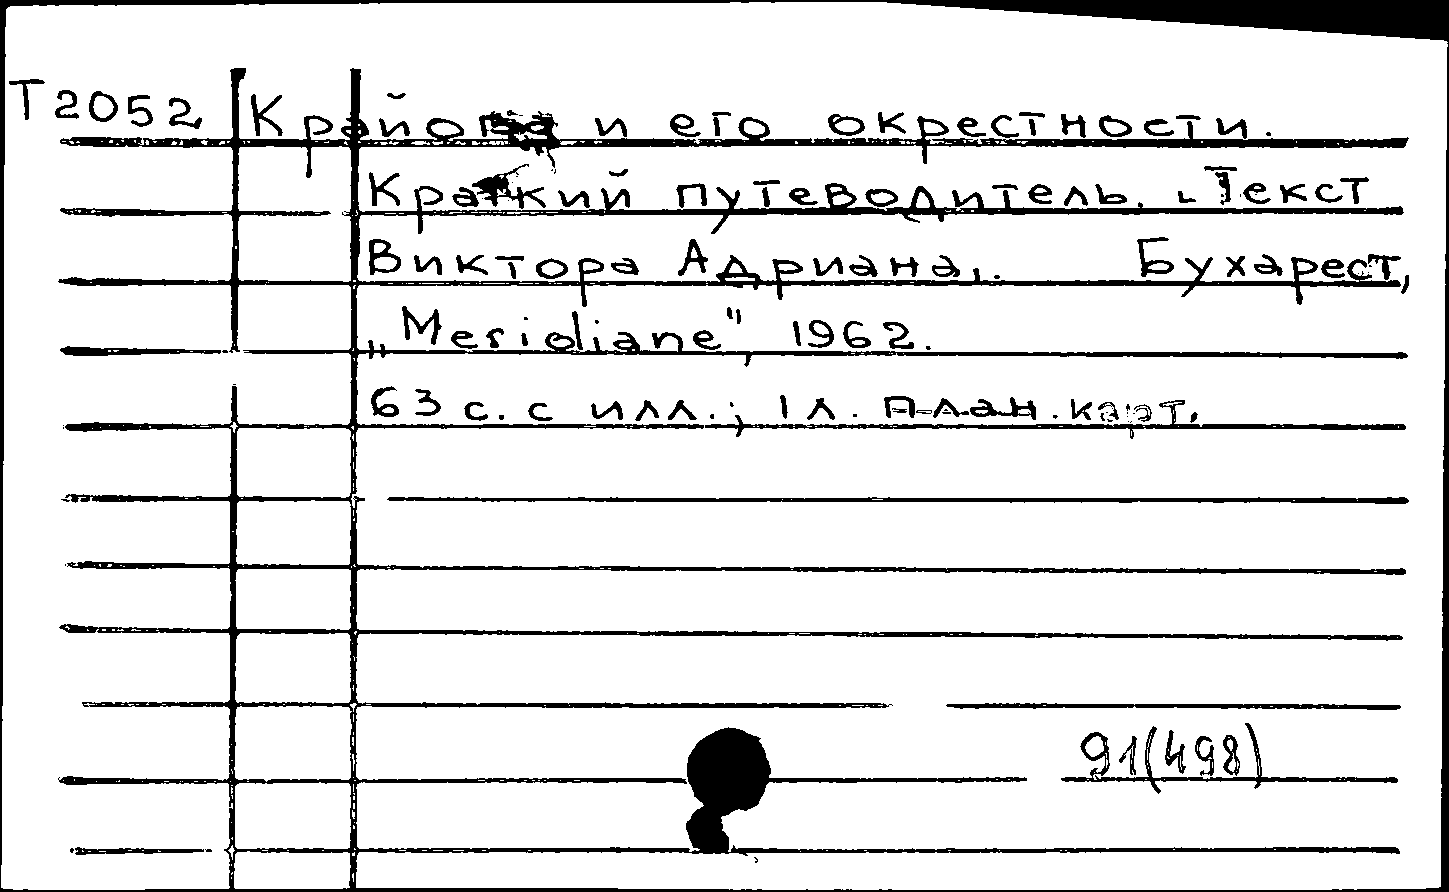 Т2052 Крайова и его окрестности.
Краткий путеводитель. Текст
Виктора Адриана,. Бухарест,
„Meridiane", 1962.
63 с. с илл.; 1 л. план. карт.
91(498)